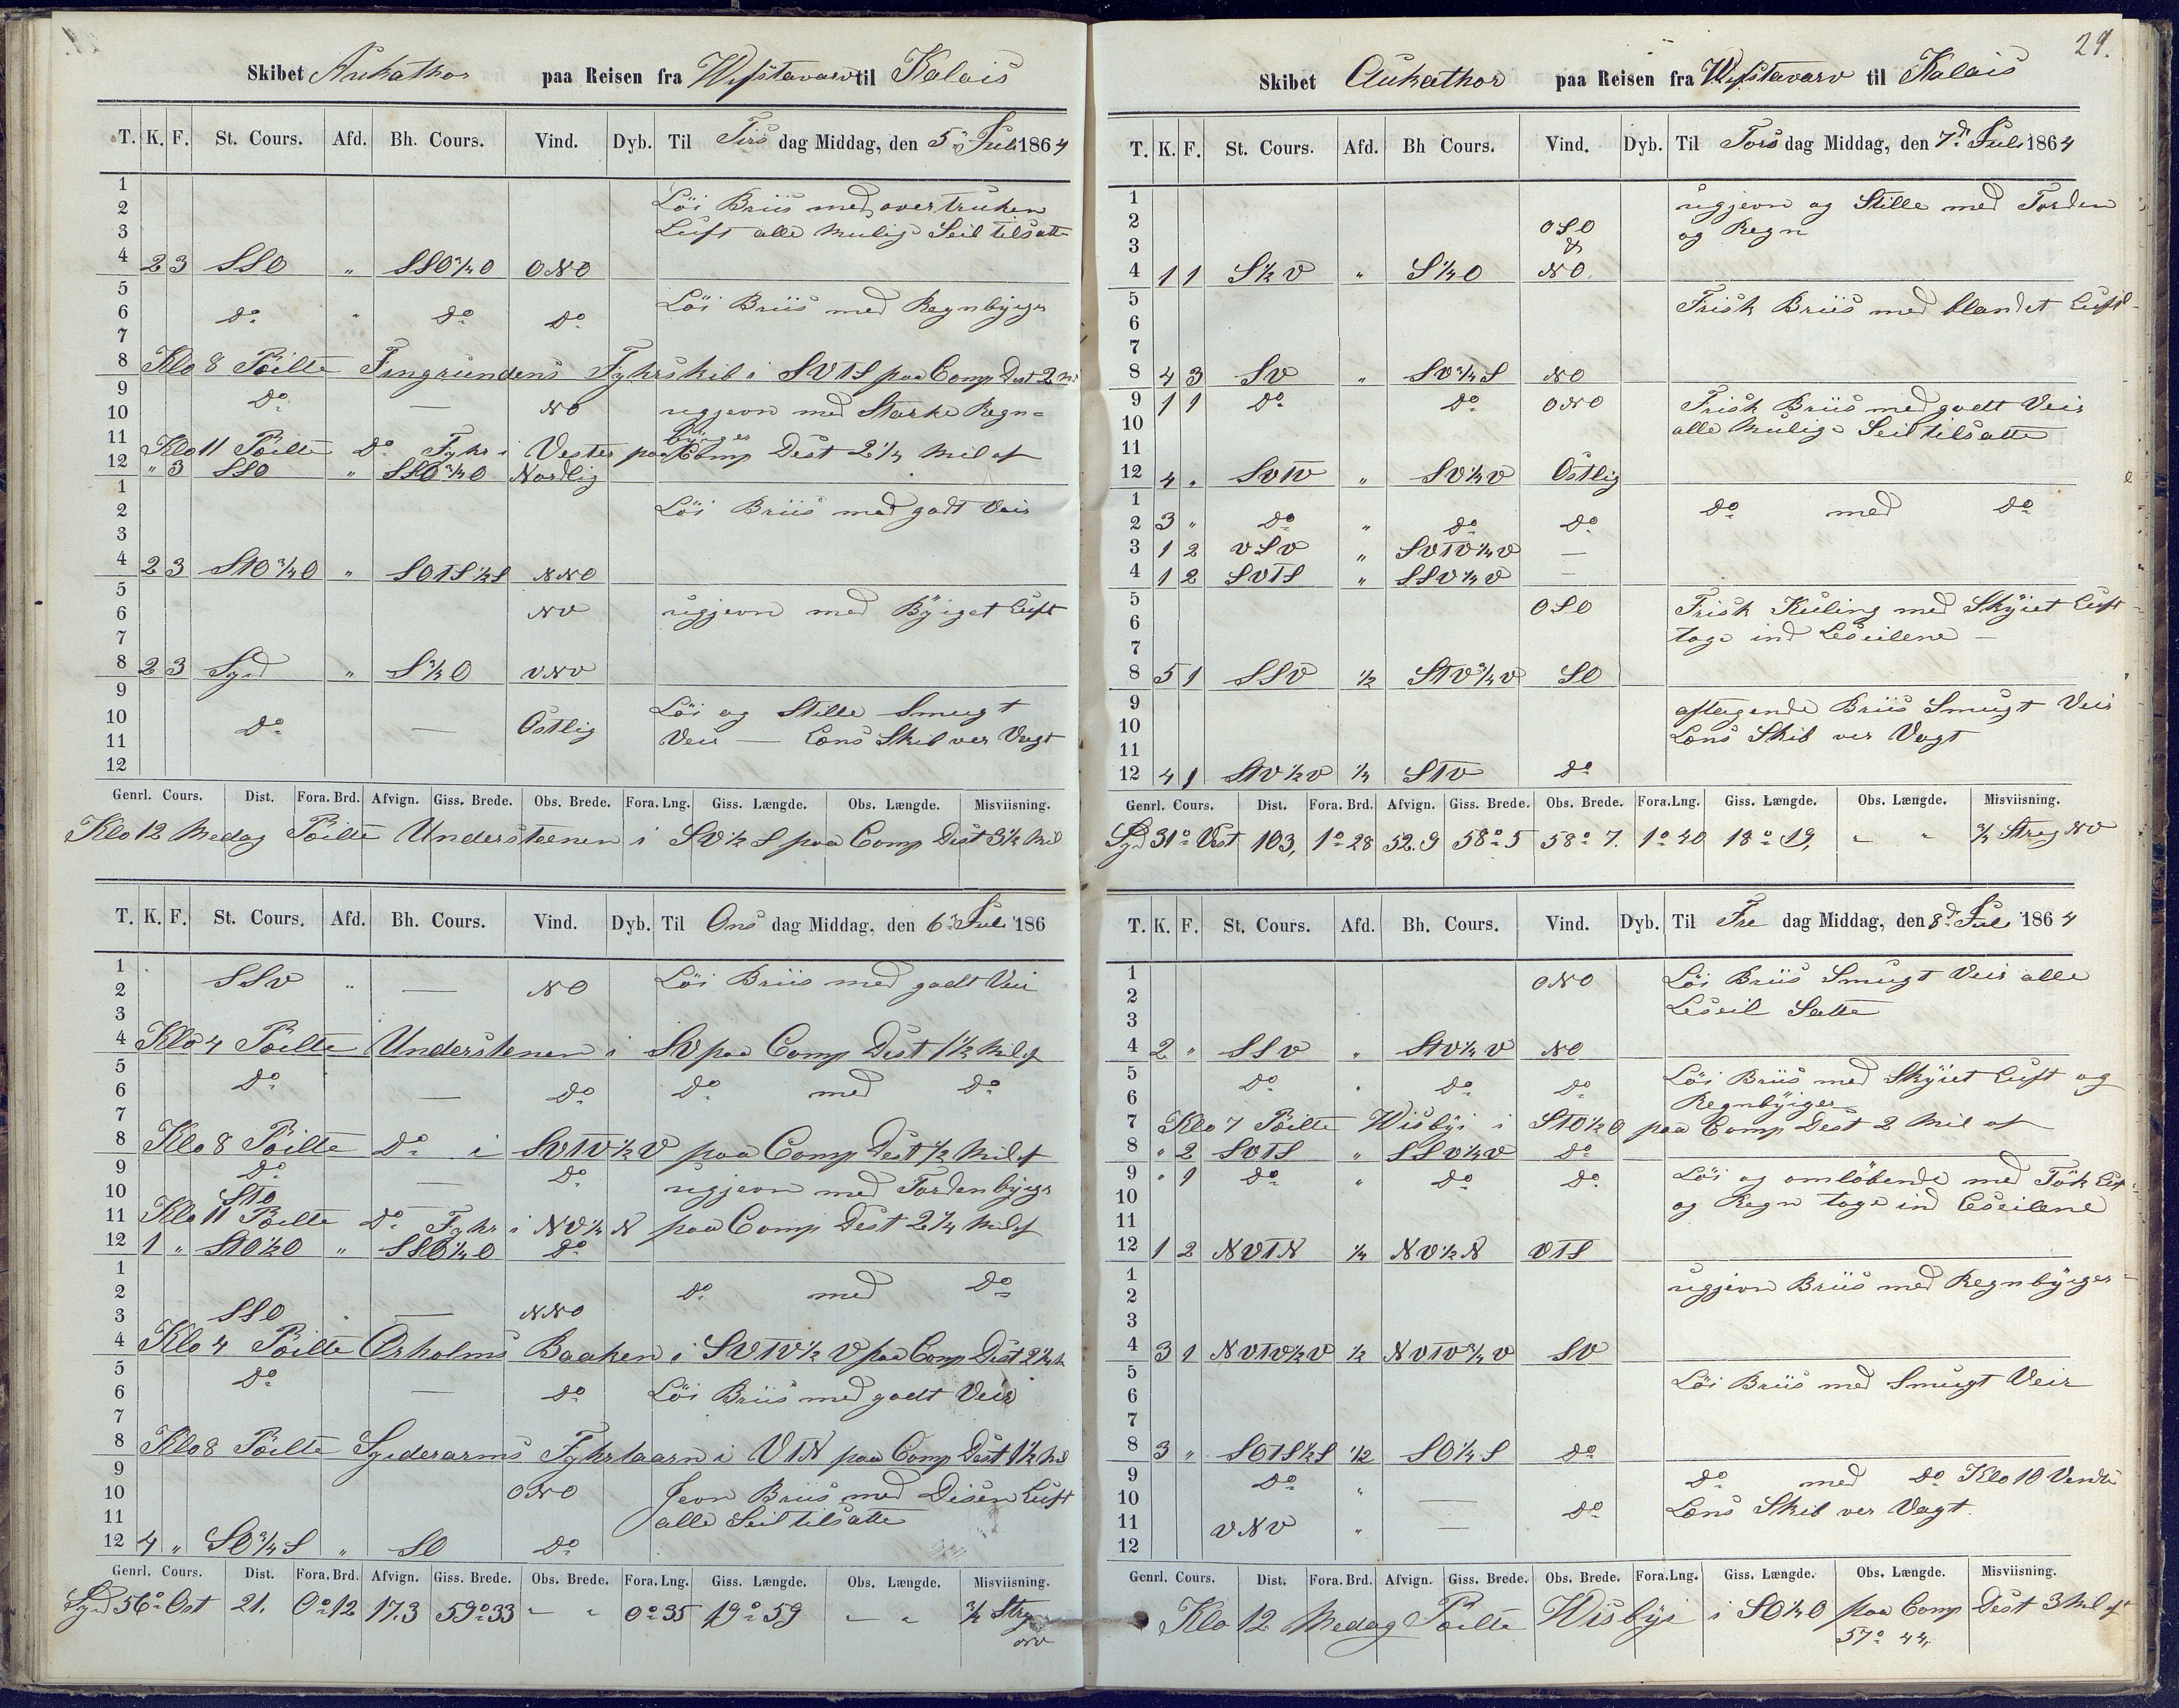 Skibet Aukathor paa Reisen fra Wifstavarv til Kalais
T. K. F. St. Cours. Afd. Bh. Cours. Vind. Dyb. Til Tirs dag Middag, den 5d Juli 1864
1
2 Löi Briis med overtruken
3 Luft alle Mulige Seil tilsatte
4 2 3 SSO " SSO 3/4 O ONO
5
6 Do " Do Do Löi Briis med Regnbyiger
7
8 Klo 8 Peilte Fingrundens Fyhrskib i SVTS paa Comp Dest 2 M
9 Do — NO ugjevn med Stærke Regn-
10 byiger
11 Klo 11 Peilte Do Fyhr i Vester paa Comp Dest 2 1/4 Mil af
12 " 3 SSO " SSO 3/4 O Nordlig
1
2 Löi Briis med godt Veir
3
4 2 3 STO 3/4 O " SOTS 1/2 S NNO
5
6 NV ugjevn med Byiget Luft
7
8 2 3 Syd " S 3/4 O VNV
9
10 Do — Östlig Löi og Stille Smugt
11 Veir — Lens Skib ver Vagt
12
Genrl. Cours. Dist. Fora. Brd. Afvign. Giss. Brede. Obs. Brede. Fora. Lng. Giss. Længde. Obs. Længde. Misviisning.
Klo 12 Medag Peilte Understeenen i SV 1/2 S paa Comp Dist 3 1/2 Mil
T. K. F. St. Cours. Afd. Bh. Cours. Vind. Dyb. Til Ons dag Middag, den 6d Juli 186
1
2 SSV " — NO Löi Briis med godt Veir
3
4 Klo 4 Peilte Understenen i SV paa Comp Dest 1 1/2 Mil af
5
6 Do — Do Do med Do
7
8 Klo 8 Peilte Do i SVTV 1/2 V paa Comp Dest 1/2 Mil af
9 Do — Do ugjevn med Tordenbyiger
10 STO
11 Klo 11 Peilte Do Fyhr i NV 1/4 N paa Comp Dest 2 1/4 Mil af
12 1 " STO 1/2 O " SSO 1/4 O Do
1
2 Do med Do
3 SSO " — NNO
4 Klo 4 Peilte Örholms Baaken i SVTV 1/2 V paa Comp Dist 2 1/4 M
5 Do
6 — Do Löi Briis med godt Veir
7
8 Klo 8 Peilte Syderarms Fyhrtaarn i VTN paa Comp Dest 1 1/2 Mil
9
10 ONO Jevn Briis med Disen Luft
11 alle Seil tilsatte
12 4 " SO 3/4 S " SO Do
Genrl. Cours. Dist. Fora. Brd. Afvign. Giss. Brede. Obs. Brede. Fora. Lng. Giss. Længde. Obs. Længde. Misviisning.
Syd 56° Ost 21. 0° 12 17.3 59° 33 " " 0° 35 19° 59 " " 3/4 Streg
NV
29.
Skibet Aukathor paa Reisen fra Wifstavarv til Kalais
T. K. F. St. Cours. Afd. Bh Cours. Vind. Dyb. Til Tors dag Middag, den 7d Juli 1864
1 ugjevn og Stille med Torden
2 OSO og Regn
3 &
4 1 1 S 1/2 V " S 1/4 O NO
5 Frisk Briis med blandet Luft
6
7
8 4 3 SV " SV 3/4 S NO
9 1 1 Do Do ONO Frisk Briis med godt Veir
10 alle Mulige Seil tilsatte
11
12 4 " SVTV " SV 1/4 V Östlig
1 Do med Do
2 3 " Do " Do Do
3 1 2 VSV " SVTV 1/4 V —
4 1 2 SVTS " SSV 1/4 V —
5 OSO Frisk Kuling med Skyiet Luft
6 toge ind Leseilene —
7
8 5 1 SSV 1/2 STV 3/4 V SO
9 aftagende Briis Smugt Veir
10 Lens Skib ver Vagt
11
12 4 1 STV 1/2 V 1/4 STV Do
Genrl. Cours. Dist. Fora. Brd. Afvign. Giss. Brede. Obs. Brede. Fora. Lng. Giss. Længde. Obs. Længde. Misviisning.
Syd 31° Vest 103, 1° 28 52.9 58° 5 58° 7. 1° 40 18° 19, " " 3/4 Streg NV
T. K. F. St. Cours. Afd. Bh. Cours. Vind. Dyb. Til Fre dag Middag, den 8d Juli 1864
1 ONO Löi Briis Smugt Veir alle
2 Leseil Satte
3
4 2 " SSV " STV 1/4 V NO
5 Do " Do Do Löi Briis med Skyiet Luft og
6 Regnbyiger
7 Klo 7 Peilte Wisbyi i STO 1/2 O paa Comp Dest 2 Mil af
8 " 2 SVTS " SSV 1/4 V Do
9 " 1 Do " Do Do Löi og omlöbende med Tök Luft
10 og Regn toge ind Leseilene
11
12 1 2 NVTN 1/4 NV 1/2 N VTS
1 ugjevn Briis med Regnbyiger
2
3
4 3 1 NVTV 1/2 V 1/2 NVTV 3/4 V SV
5 Löi Briis med Smugt Veir
6
7
8 3 " SOTS 1/2 S 1/2 SO 1/4 S Do
9 Do " Do med Do Klo 10 Vendte
10 — Do Lens Skib ver Vagt.
11 VNV " —
12
Genrl. Cours. Dist. Fora. Brd. Afvign. Giss. Brede. Obs. Brede. Fora. Lng. Giss. Længde. Obs. Længde. Misviisning.
Klo 12 Medag Peilte Wisbyi i SO 1/4 O paa Comp Dest 3 Mil af
57° 44,